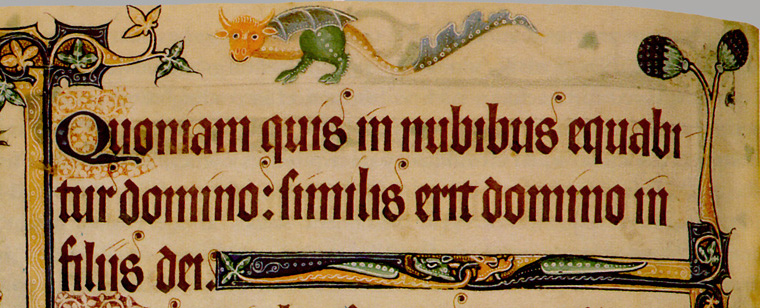 Quoniam quis in nubibus equabi
tur domino: similis erit domino in
filiis dei.